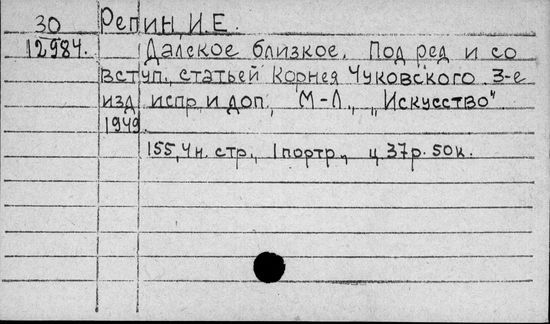 30 Репин И.Е.
12984. Далекое близкое. Под ред и со
вступ. статьей Корнея Чуковского 3-е
изд испр и доп., М-Л., „Искусство"
1949.
155, 4н. стр., 1 портр., ц 37р. 50к.